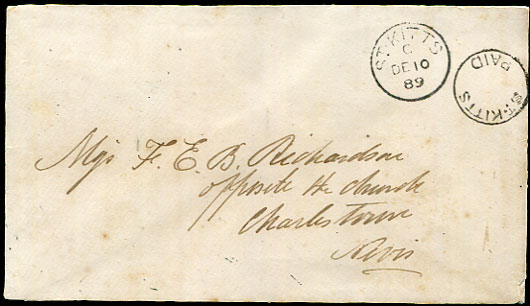 ST. KITTS
C
DE 10
89
PAID
ST. KITTS
Mrs F. E. B. Richardson
opposite the church
Charlestown
Nevis